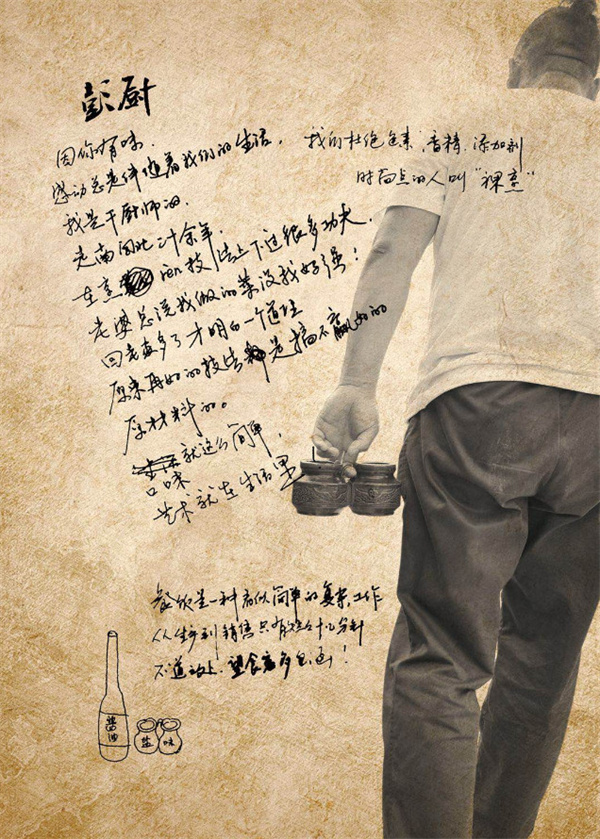 彭厨
因你有味.
感动总是伴随着我们的生活,
我是干厨师的.
走南闯北二十余年,
在烹 的技法上下过很多功夫.
老婆总说我做的菜没我妈强!
回老家多了才明白一个道理
原来再好的技 是搞不赢好的
原材料的。
就这么简单,
口味
艺术就在生活里
我们杜绝色素,香精,添加剂
时尚点的人叫"裸烹"
餐饮是一种看似简单的复杂工作
从生产到销售只有短短十几分钟
不 之处,望食客多包涵!
酱油
盐
味